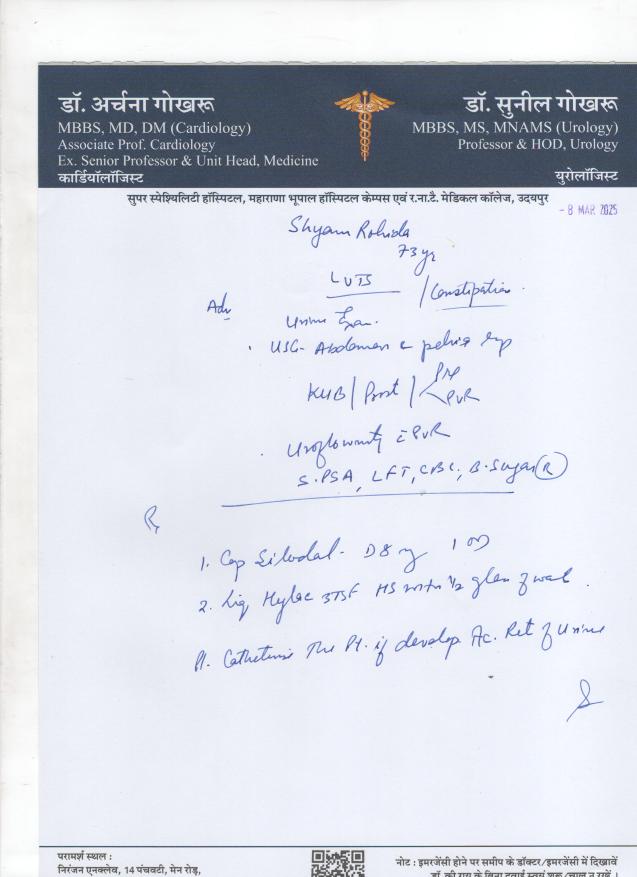 डॉ. अर्चना गोखरू
MBBS, MD, DM (Cardiology)
Associate Prof. Cardiology
Ex. Senior Professor & Unit Head, Medicine
कार्डियॉलॉजिस्ट
डॉ. सुनील गोखरू
MBBS, MS, MNAMS (Urology)
Professor & HOD, Urology
युरोलॉजिस्ट
सुपर स्पेश्यिलिटी हॉस्पिटल, महाराणा भूपाल हॉस्पिटल केम्पस एवं र.ना.टै. मेडिकल कॉलेज, उदयपुर
- 8 MAR 2025
Shyam
73 yr
LUTS / Constipation
Adv
Urine Exam.
USG- Abdomen c pelvis
KUB / Prost / Pre
PVR
Uroflowmetry c PVR
S.PSA, LFT, CBC, B. Sugar (R)
Rx
1. Cap Silodal- D 8 mg 1 OD
2. Liq 3TSF HS with 1/2 glass of wat
Pl. Catheterise The Pt. if develop Ac. Ret of Urine
परामर्श स्थल :
निरंजन एनक्लेव, 14 पंचवटी, मेन रोड़,
नोट : इमरजेंसी होने पर समीप के डॉक्टर/इमरजेंसी में दिखावें